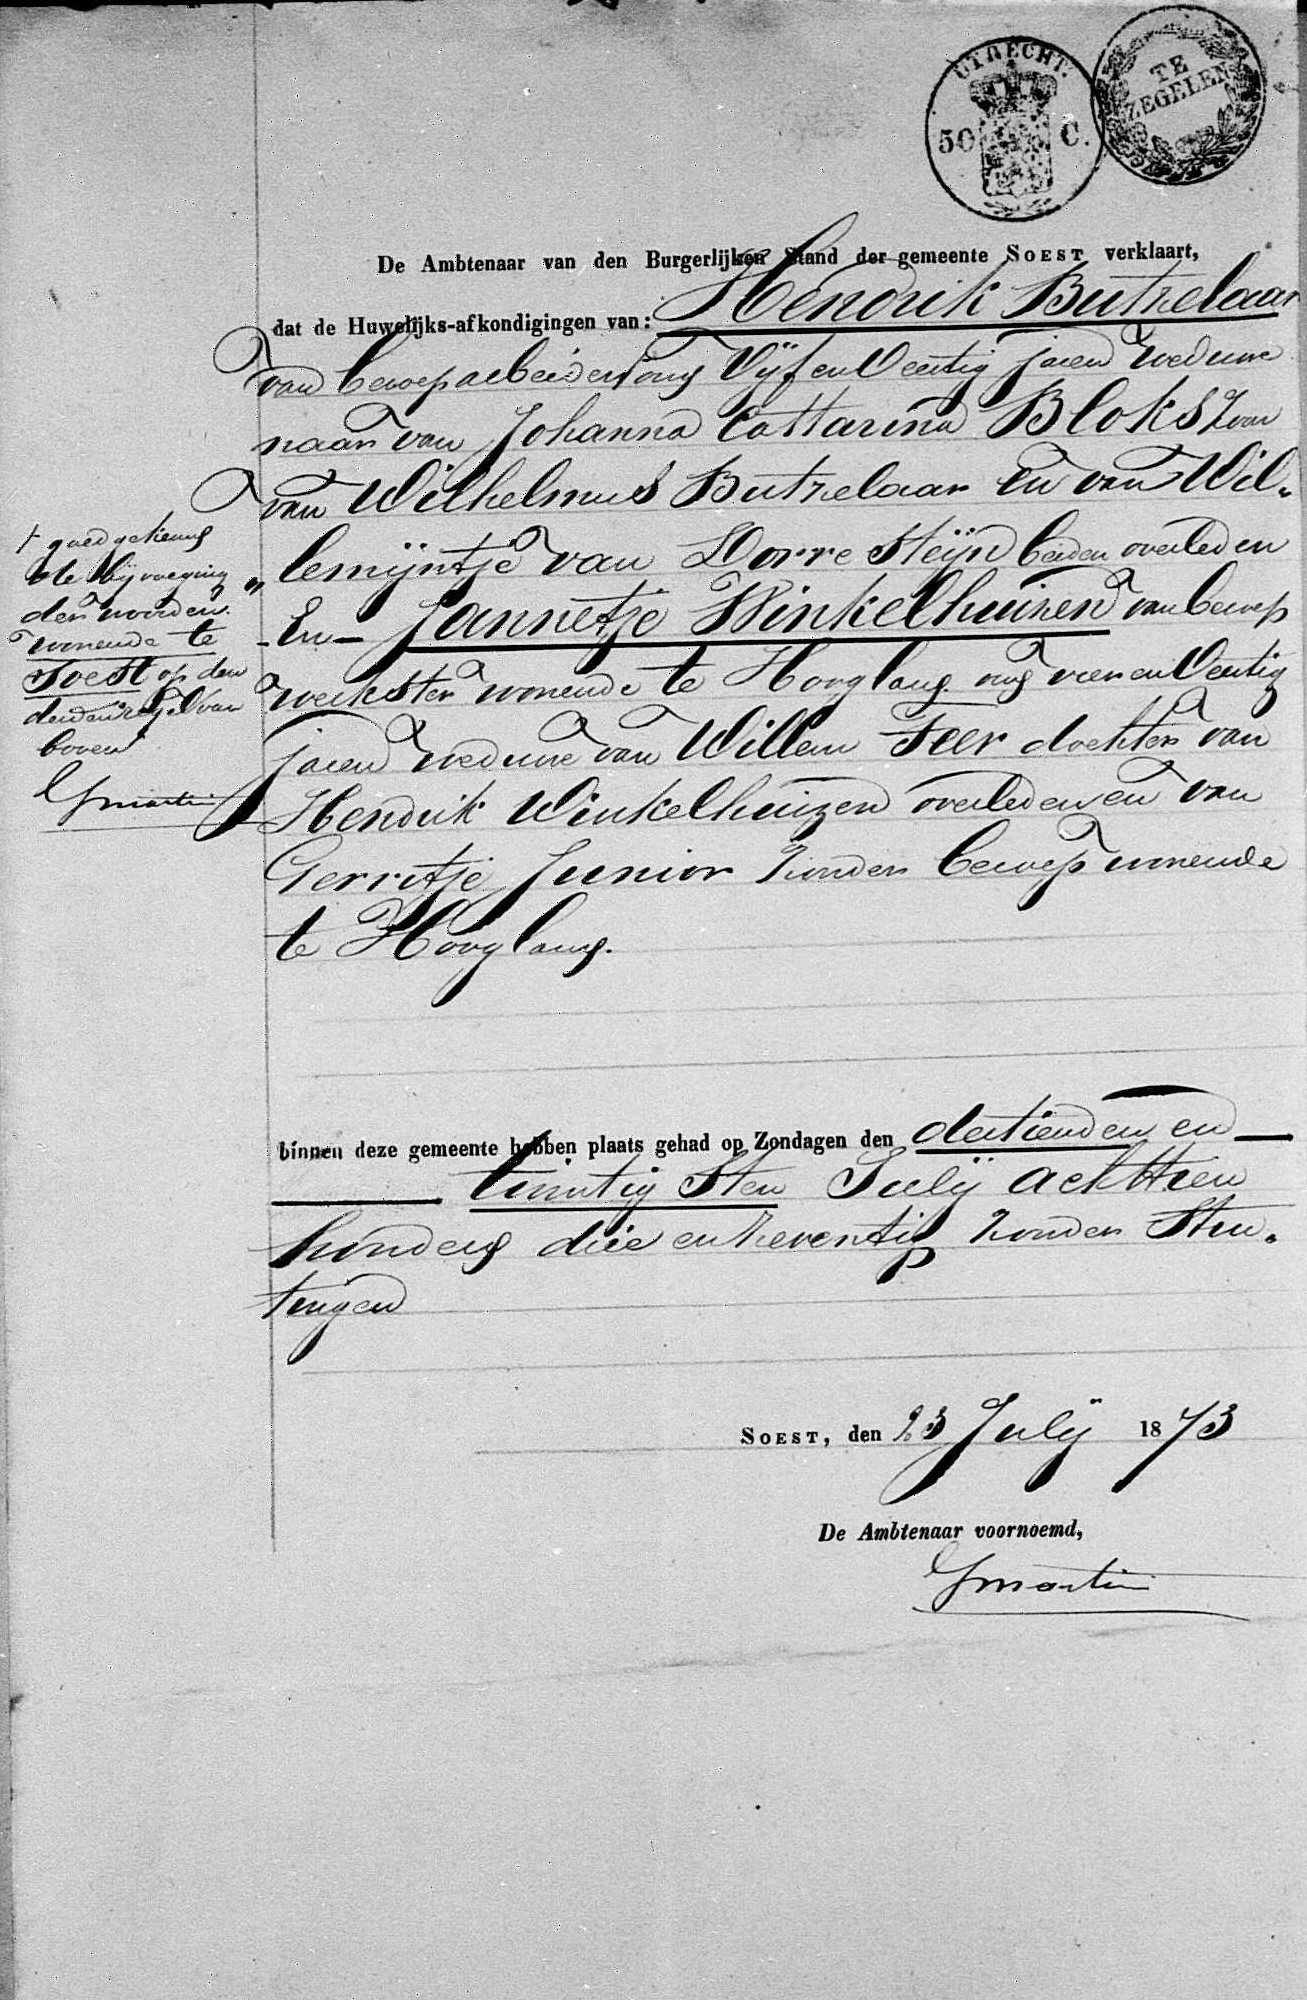 UTRECHT.
50 C.
TE
ZEGELEN
De Ambtenaar van den Burgerlijken Stand der gemeente SOEST verklaart,
dat de Huwelijks-afkondigingen van: Hendrik Butzelaar
van beroep arbeider oud Vijf en Veertig jaren Weduwe
naar van Johanna Cattarina Bloks Zoon
van Wilhelmus Butzelaar en van Wil„
„lemijntje van Dorresteijn beiden overleden
- En - Jannetje Winkelhuizen van beroep
werkster wonende te Hoogland oud vier en Veertig
jaren Weduwe van Willem Feer dochter van
Hendrik Winkelhuizen overleden en van
Gerritje Junior Zonder beroep wonende
te Hoogland.
+ goedgekeurd
de bijvoeging
der woorden
wonende te
Soest op den
derden regel van
boven
GMartini
binnen deze gemeente hebben plaats gehad op Zondagen den dertienden en
twintigsten Julij achttien
honderd drie en zeventig zonder Stui„
tingen
SOEST, den 23 Julij 1873
De Ambtenaar voornoemd,
GMartini